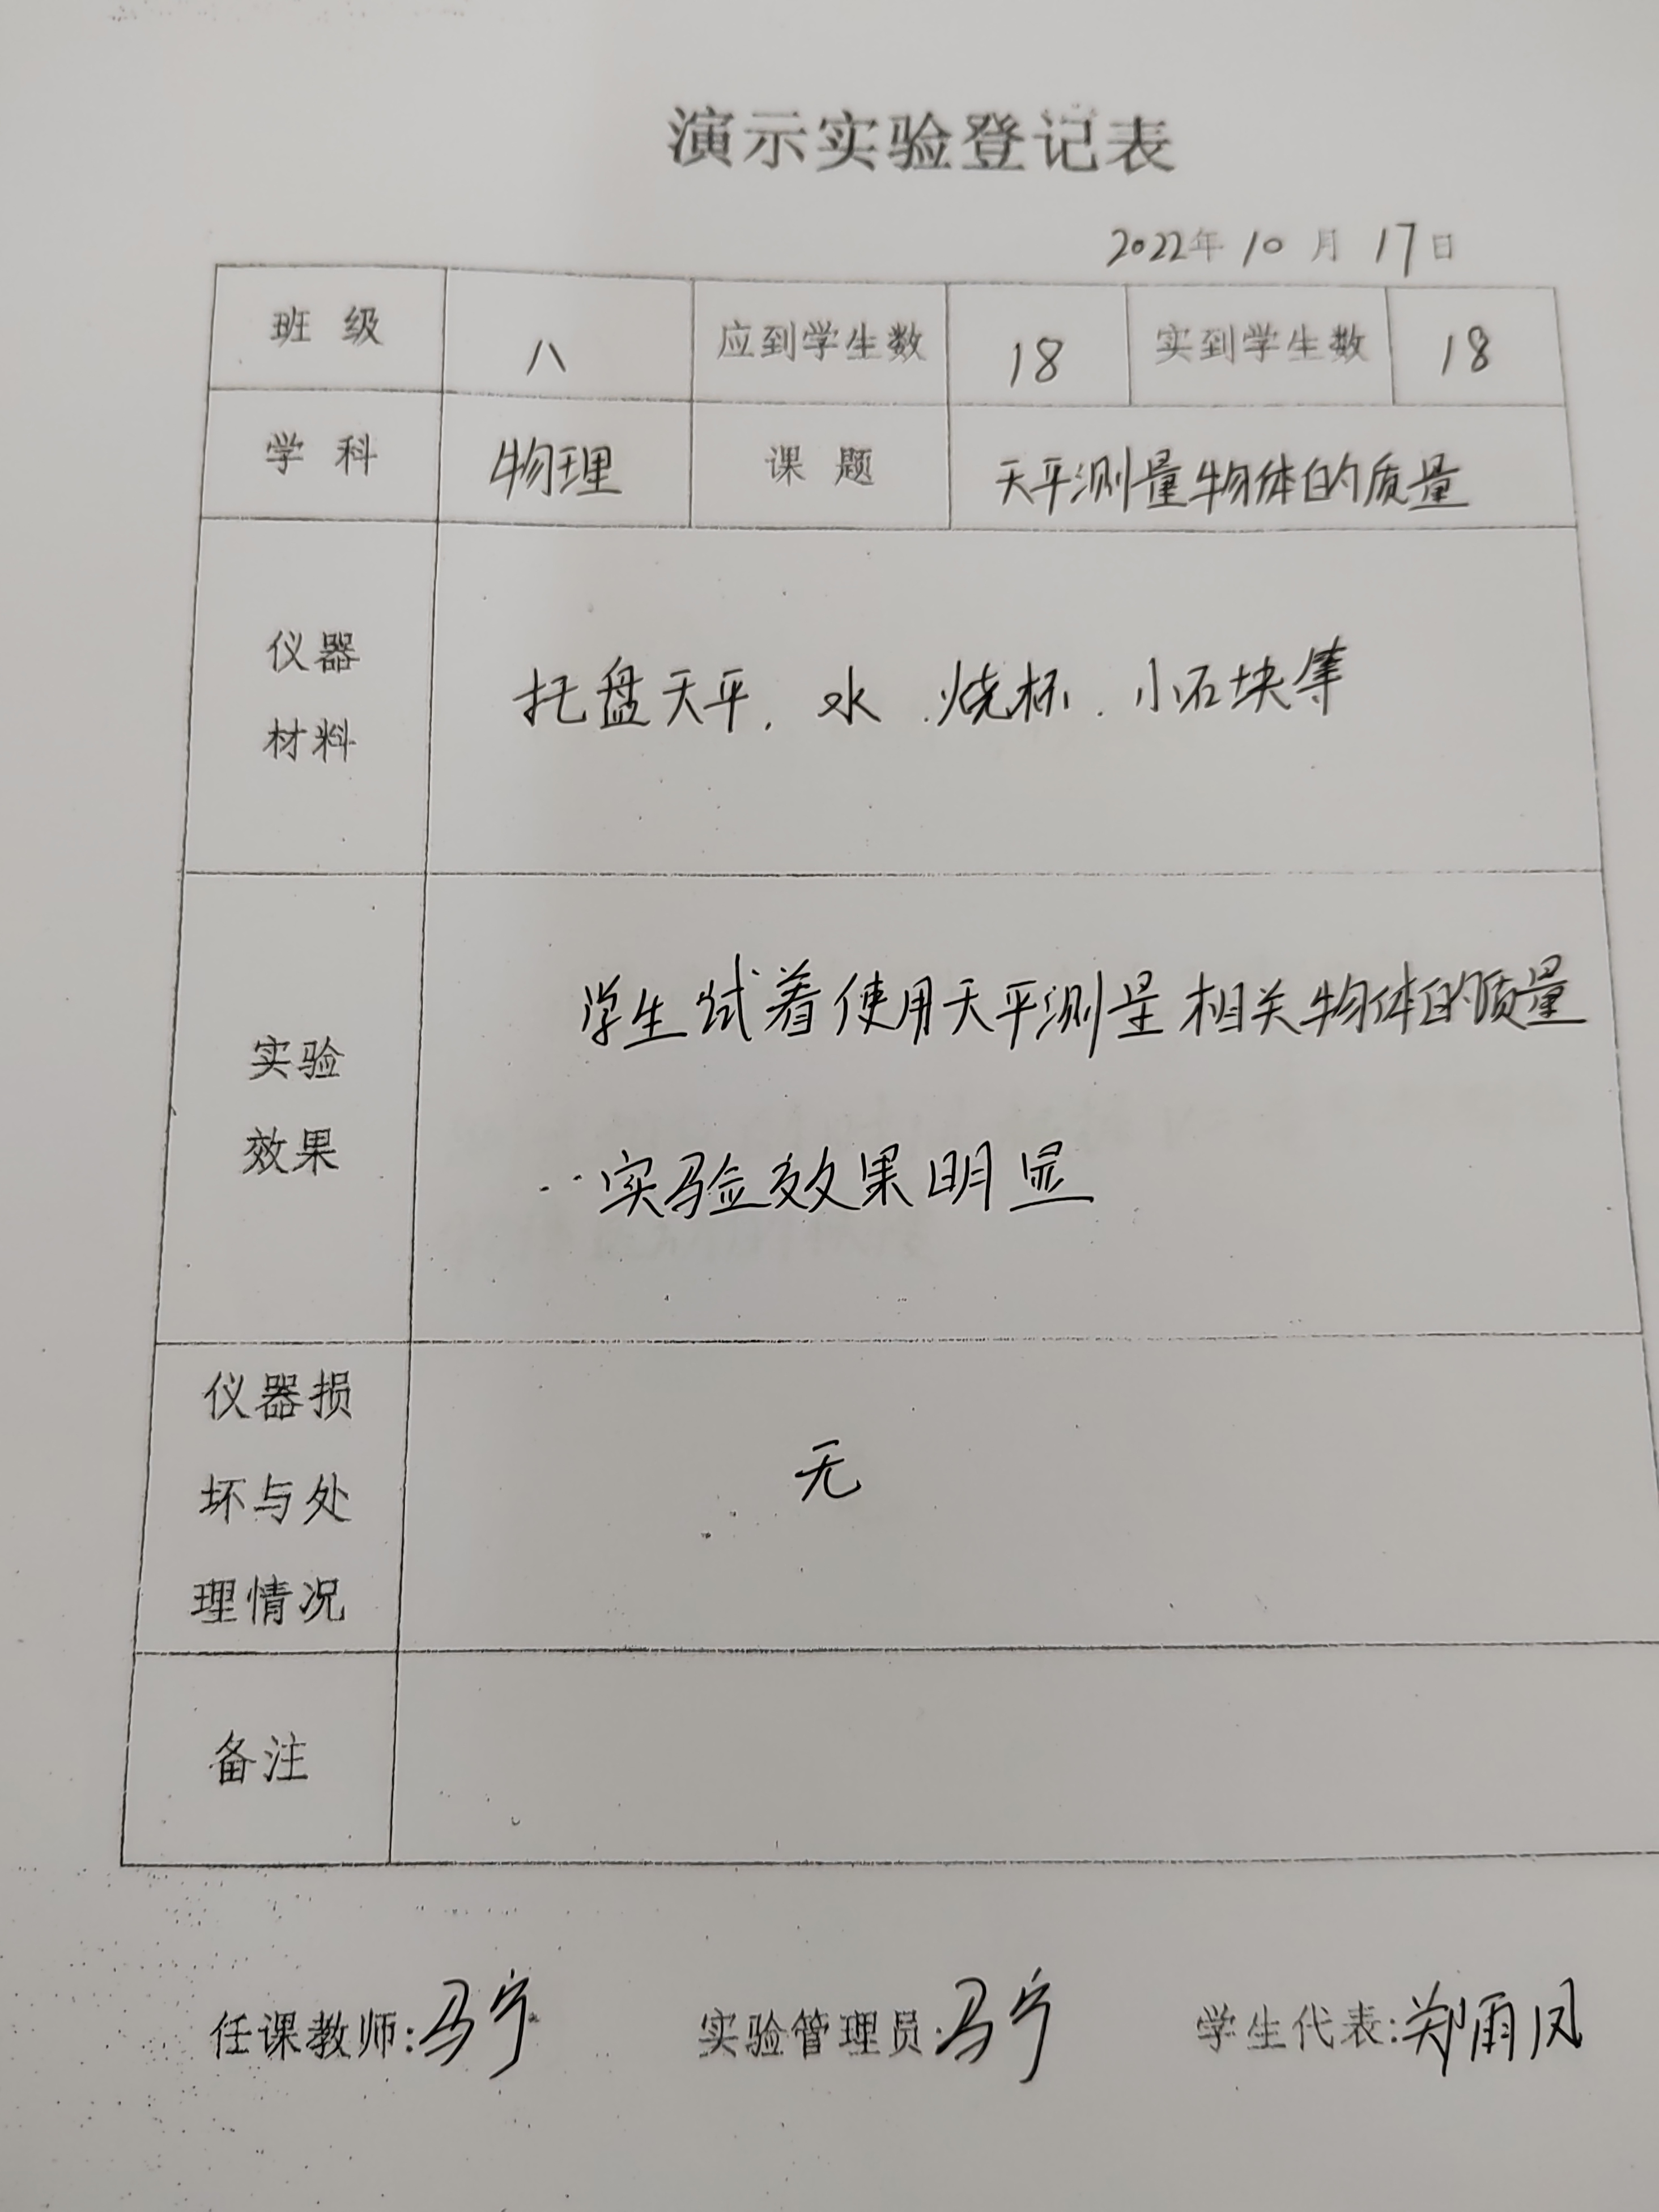 演示实验登记表
2022年 10 月 17日
班 级 八 应到学生数 18 实到学生数 18
学 科 物理 课 题 天平测量物体的质量
仪器
材料
托盘天平、水、烧杯、小石块等
实验
效果
学生试着使用天平测量相关物体的质量
实验效果明显
仪器损
坏与处
理情况
无
备注
任课教师:马宁 实验管理员:马宁 学生代表:郑雨凤